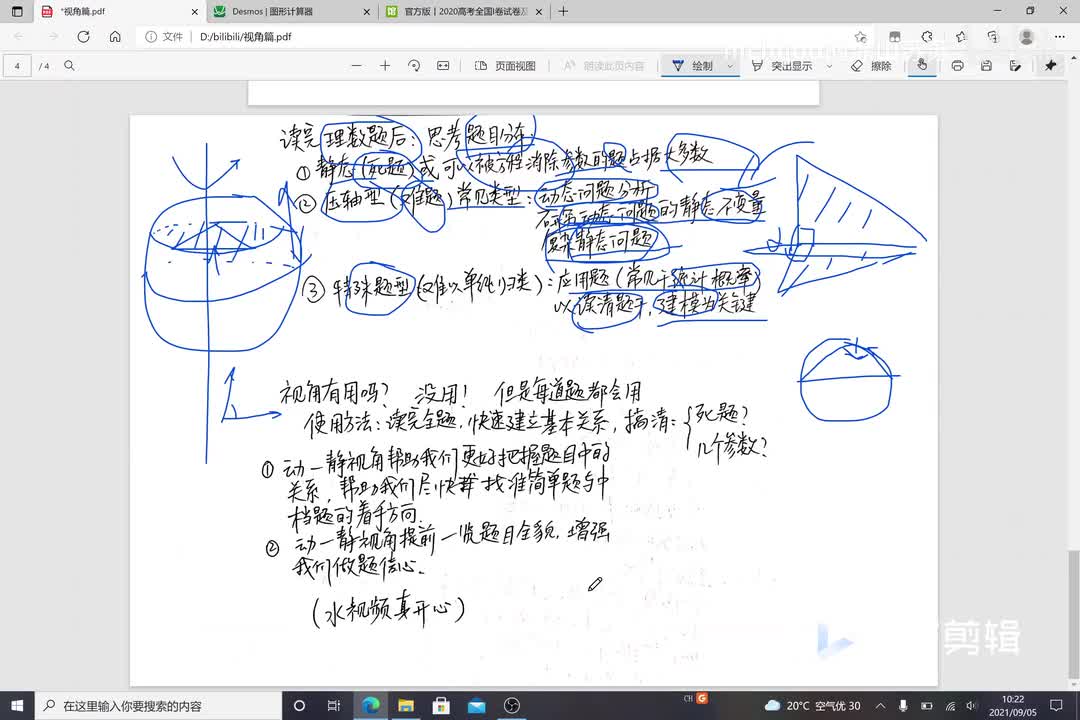 *视角篇.pdf
Desmos | 图形计算器
官方版 | 2020高考全国I卷试卷及
文件 | D:/bilibili/视角篇.pdf
4 / 4
页面视图
朗读此页内容
绘制
突出显示
擦除
读完理数题后: 思考题目分布:
① 静态(死题)或可以被方程消除参数的题占据大多数
② 压轴型(难题)常见类型: 动态问题分析
研究动态问题的静态不变量
复杂静态问题
③ 特殊题型(难以单纯归类): 应用题(常见于统计概率)
以读清题干, 建模为关键
视角有用吗? 没用! 但是每道题都会用
使用方法: 读完全题, 快速建立基本关系, 搞清:
死题?
几个参数?
① 动一静视角帮助我们更好把握题目中的
关系, 帮助我们尽快找准简单题与中
档题的着手方向.
② 动一静视角提前一览题目全貌, 增强
我们做题信心.
(水视频真开心)
剪辑
在这里输入你要搜索的内容
CH
20°C 空气优 30
10:22
2021/09/05